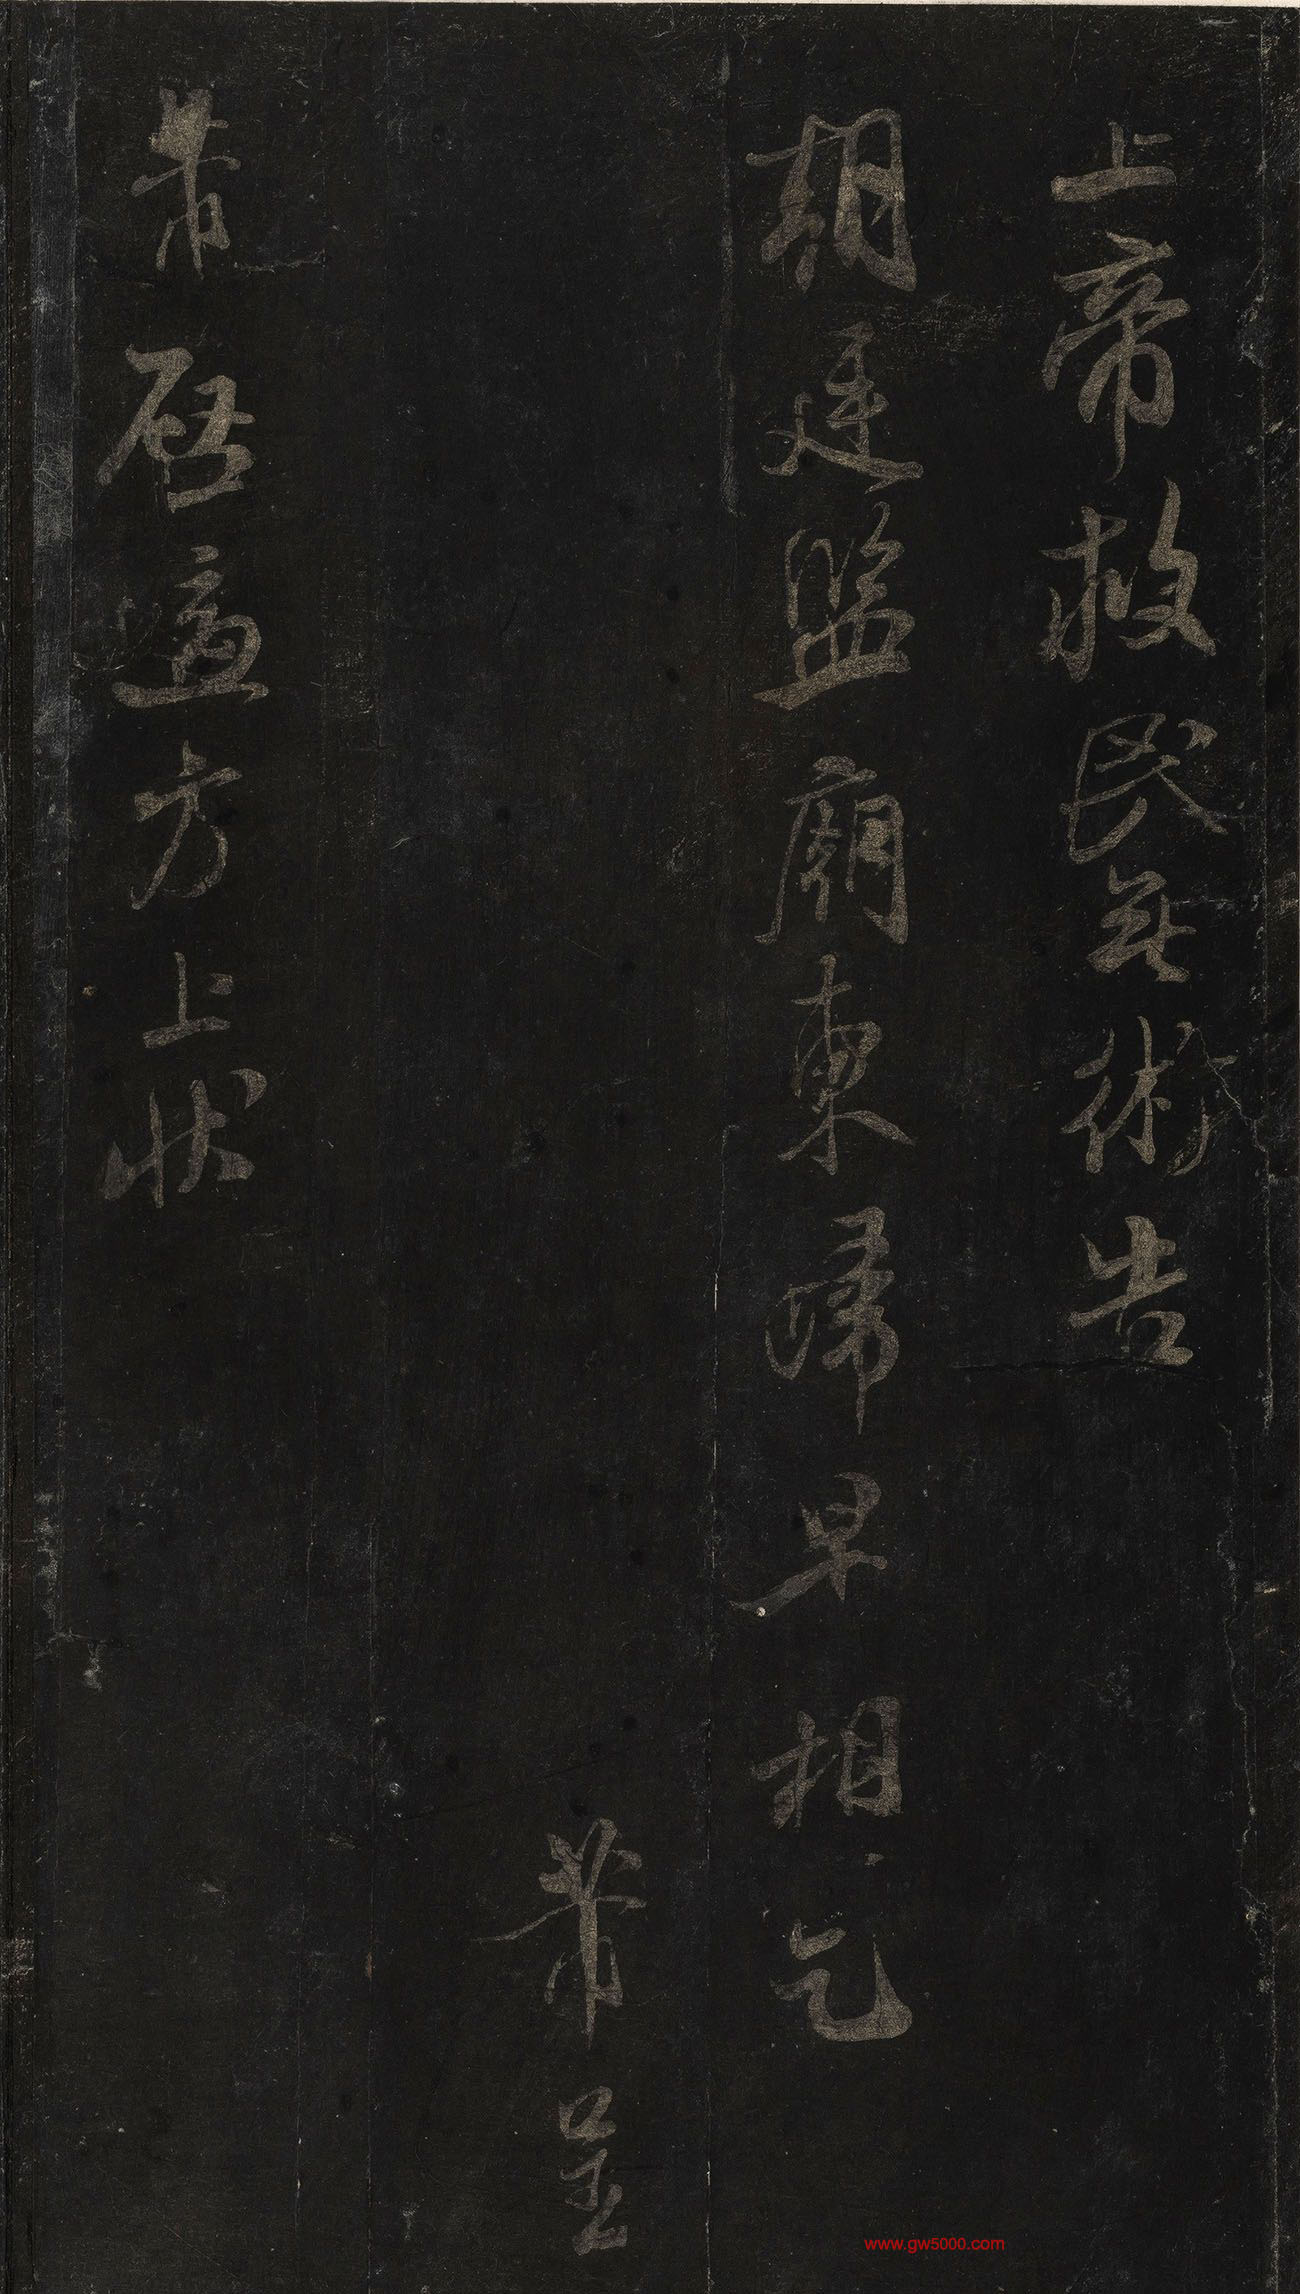 上帝救民無術告
朝廷監廟東歸早相乞
芾呈
芾啓適方上狀
www.gw5000.com